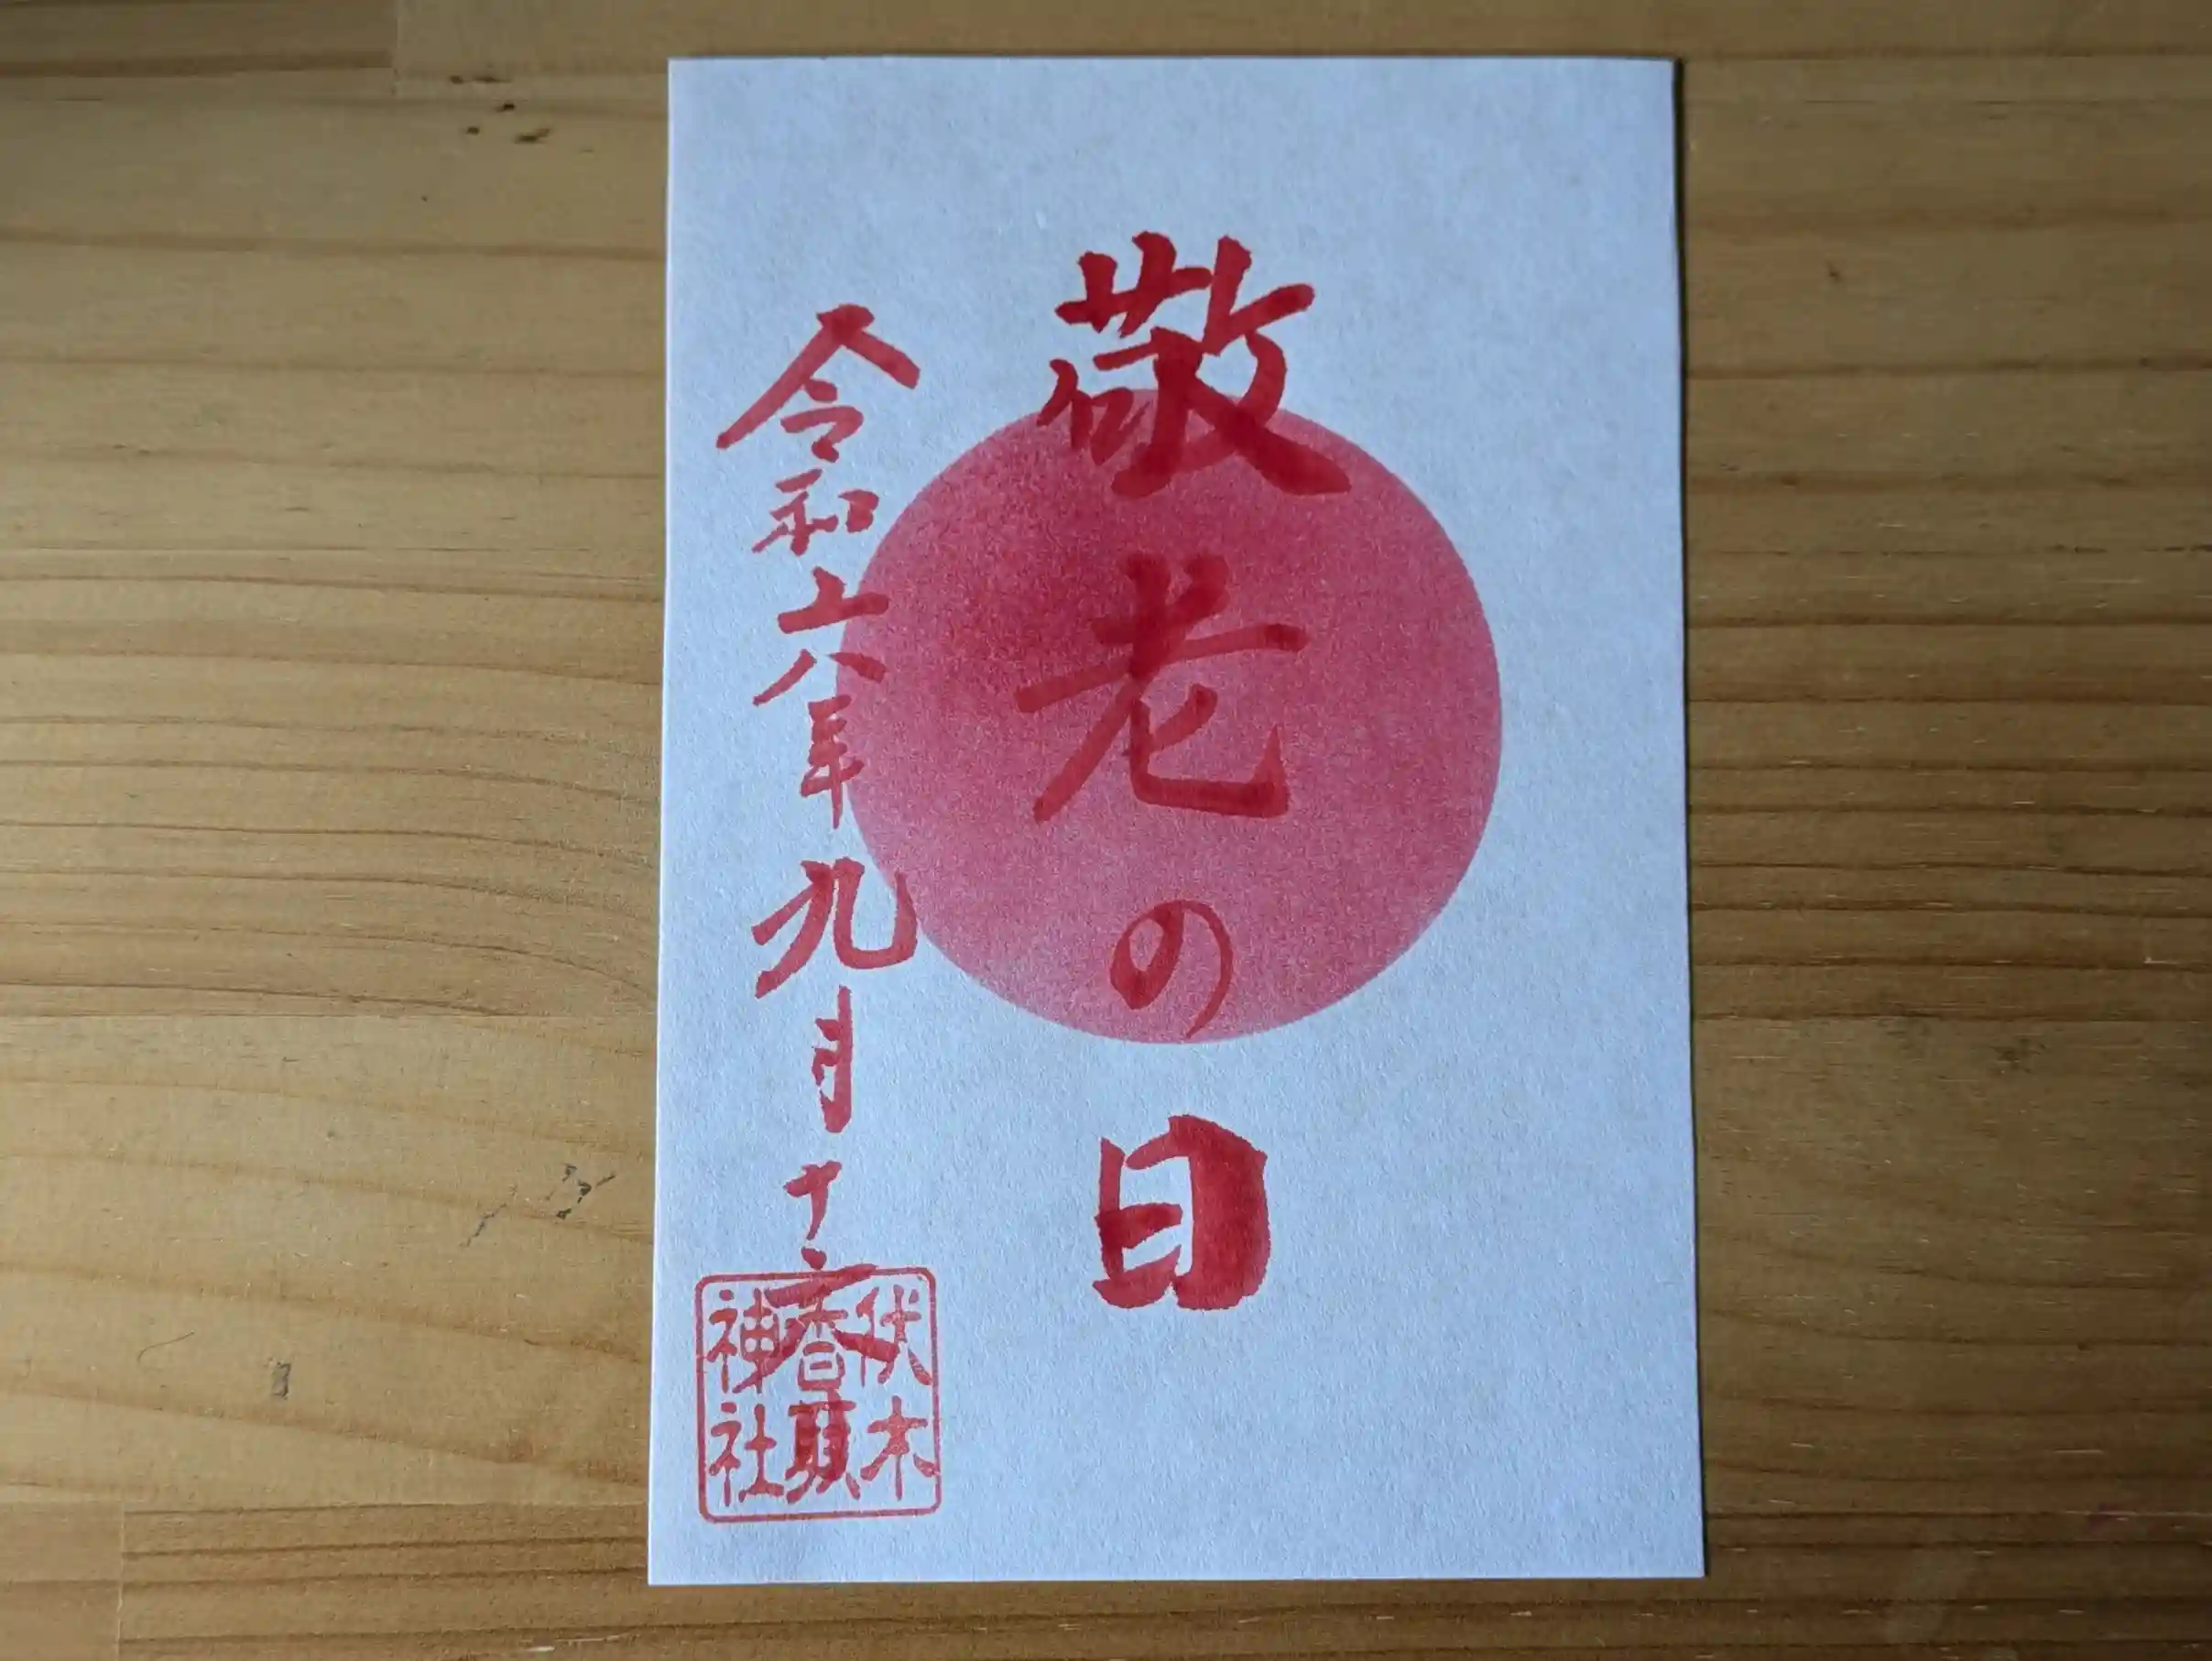 敬老の日
令和六年九月十六
伏木
香取
神社